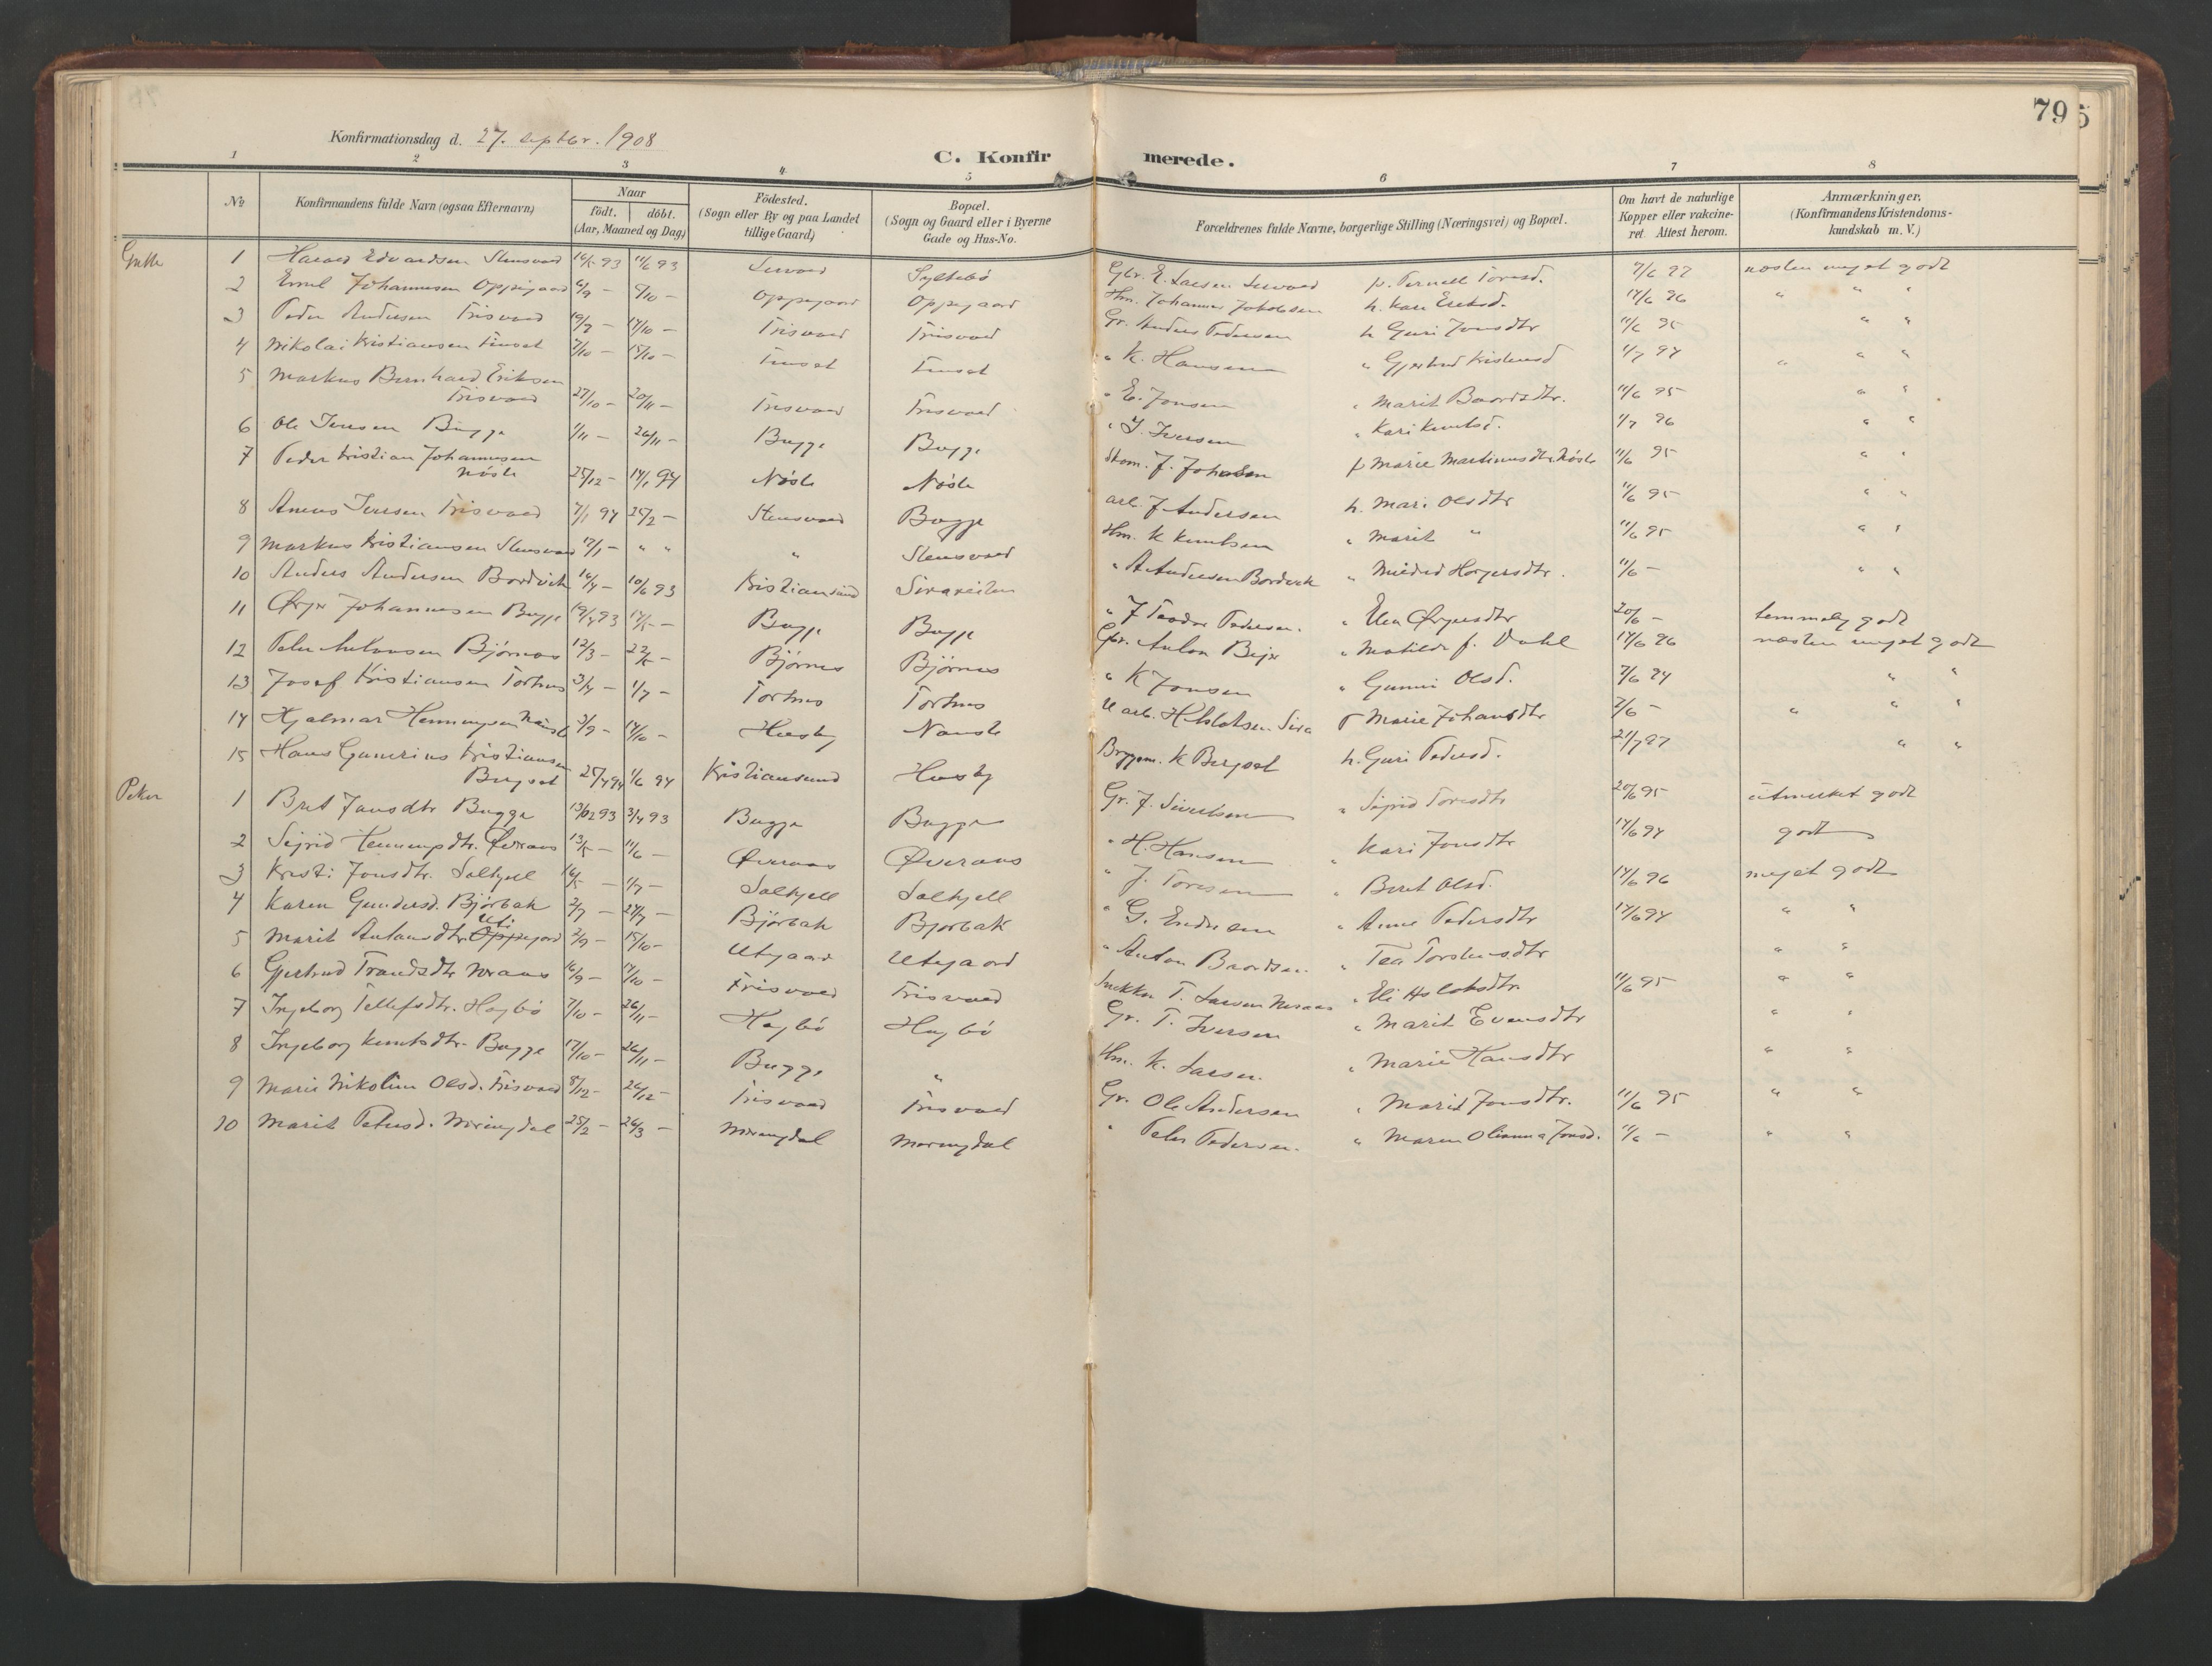 79
5
Konfirmationsdag d. 27. septbr. 1908
C. Konfirmerede.
1 2 3 4 5 6 7 8
No
Konfirmandens fulde Navn (ogsaa Efternavn)
Naar
födt. döbt.
(Aar, Maaned og Dag)
Födested.
(Sogn eller By og paa Landet
tillige Gaard)
Bopæl.
(Sogn og Gaard eller i Byerne
Gade og Hus-No.
Forældrenes fulde Navne, borgerlige Stilling (Næringsvei) og Bopæl.
Om havt de naturlige
Kopper eller vakcine-
ret. Attest herom.
Anmærkninger.
(Konfirmandens Kristendoms-
kundskab m. V.)
Gutter
1 Harald Edvardsen Stensvaad 16/5 93 11/6 93 Syltebö Gbr. E. Larsen p. Pernell Toresd. næsten meget godt
2 Emil Johannesen Oppigaard 6/9 – 9/10 – Oppigaard Oppigaard Hm. Johannes Jakobsen h. Kari Eriksd. 14/6 96 " " "
3 Peder Andersen Trisvaad 19/9 – 14/10 – Trisvaad Trisvaad Gr. Anders Pedersen h. Guri Jonsdtr 11/6 95 " "
4 Nikolai Kristiansen Tinset 7/10 – 15/10 – Tinset Tinset " K. Hansen " Gjertrud Kristensd 1/7 97 " " "
5 Markus Bernhard Eriksen
Trisvaad 27/10 – 20/11 – Trisvaad Trisvaad " E. Jonsen " Marit Baardsdtr. 11/6 95 " "
6 Ole Iversen Bugge 1/11 – 26/11 – Bugge Bugge " I. Iversen " Kari Knutsd. 1/7 96 " "
7 Peder Kristian Johannesen
Nösle 25/12 – 14/1 94 Nösle Nösle J. Johansen p Marie Martinusdtr. Nösle 11/6 95 " "
8 Anens Iversen Trisvaad 7/1 94 25/2 – Stensvaad Bugge arb. J Andersen h. Mari Olsdtr 11/6 95 " "
9 Markus Kristiansen Stensvaad 17/1 – " " " Stensvaad Hm. K Knutsen " Marit " 11/6 95 " "
10 Anders Andersen Bordvik 16/4 – 10/6 93 Kristiansund " A Andersen Bordvik " Mildrid Holgersdtr. 11/6 – " "
11 Ørjer Johannesen Bugge 19/4 93 14/5 – Bugge Bugge " J Teodor Pedersen. " Elen Ørgersdtr 20/6 – temmelig godt
12 Peter Antonsen Björnes 12/3 – 22/5 – Björnes Björnes Gbr. Anton Beyer " Matilde f. Dahl 14/6 96 næsten meget godt
13 Josef Kristiansen Torhus 3/4 – 1/7 – Torhus Torhus " K Jonsen " Gunni Olsd. 7/6 94 " "
14 Hjalmar Henningsen 3/9 – 14/10 – Husby p Marie Johansdtr 2/6 – " " "
15 Hans Gunerius Kristiansen
Bergset 25/4 94 1/6 94 Kristiansund Husby Bryggem. K Bergset h. Guri Pedersd. 21/7 97 " "
Piker
1 Bret Jonsdtr Bugge 13/02 93 3/4 93 Bugge Bugge Gr. J. Sivertsen " Sigrid Toresdtr 20/6 95 utmerket godt
2 Sigrid Henningsdtr. Øveraas 13/5 – 11/6 – Øveraas Øveraas " H. Hansen " Kari Jonsdtr 14/6 94 godt
3 Kristi Jonsdtr. Solhjell 16/5 – 1/7 – Solhjell Solhjell " J. Toresen " Beret Olsd. 14/6 96 meget godt
4 Karen Gundersd. Björbak 2/7 – 24/7 – Björbak Bjorbak " G. Endresen " Anne Pedersdtr 14/6 94 " "
Uti
5 Marit Antonsdtr. Oppegard 2/9 – 15/10 – Utigaard Utigaard " Anton Baardsen. " Tea Torstensdtr " "
6 Gjertrud Trondsdtr Neraas 16/9 – 14/10 – Trisvaad Trisvaad Snekker T. Larsen Neraas " Eli Aslaksdtr. 11/6 95 " "
7 Ingeborg Tellefsdtr. Hagbö 7/10 – 26/11 – Hagbö Hagbö Gr. T. Iversen " Marit Evensdtr " "
8 Ingeborg Knutsdtr. Bugge 17/10 – 26/11 – Bugge " Hm. K. Larsen. " Marie Hansdtr " "
9 Marie Nikoline Olsd. Trisvaad 8/12 – 26/12 – Trisvaad Trisvaad Gr. Ole Andersen " Marit Jonsdtr. 11/6 95 " "
10 Marit Petersd. Meringdal 25/2 – 26/3 – Meringdal Meringdal " Peter Pedersen. " Maren Olianna Jonsd. 11/6 – " "